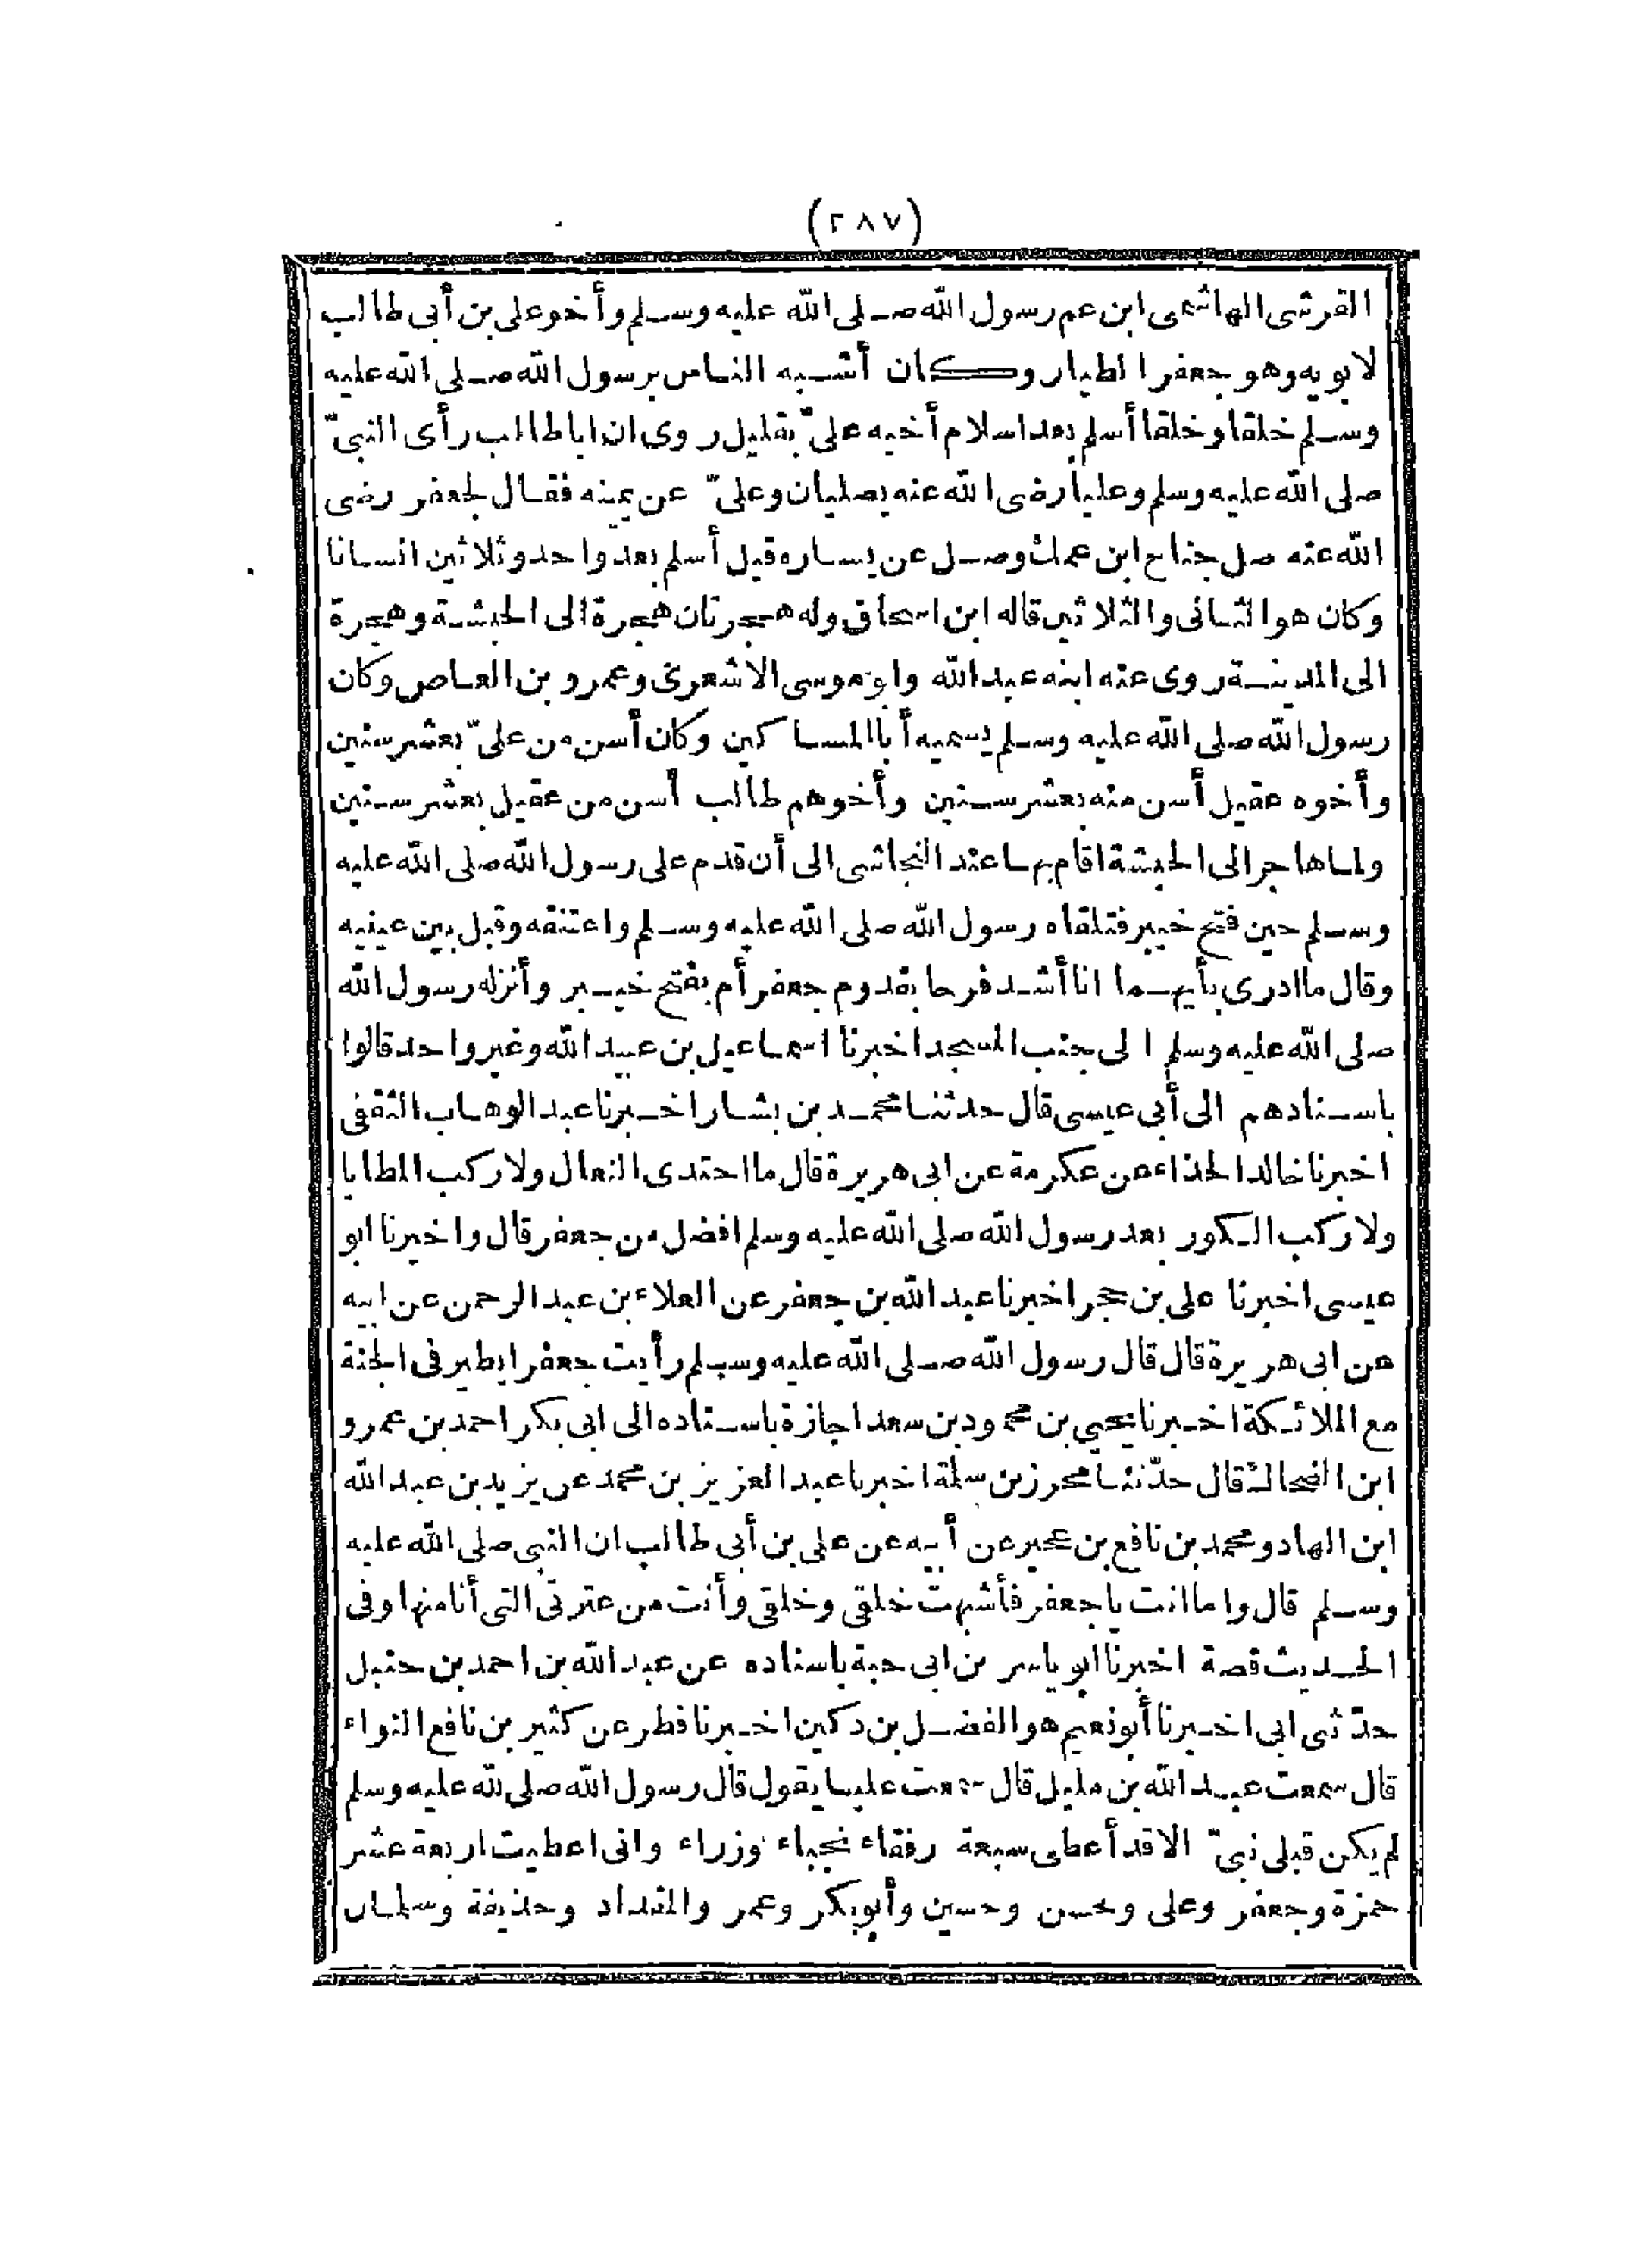 (٢٨٧)
القرشى الهاشمى ابن عم رسول الله صلى الله عليه وسلم وأخو على بن أبى طالب
لابويه وهو جعفر الطيار وكان أشبه الناس برسول الله صلى الله عليه
وسلم خلقا وخلقا أسلم بعد اسلام أخيه علىّ بقليل روى ان ابا طالب رأى النبىّ
صلى الله عليه وسلم وعليا رضى الله عنه يصليان وعلىّ عن يمينه فقال لجعفر رضى
الله عنه صل جناح ابن عمك وصل عن يساره قيل أسلم بعد واحد وثلاثين انسانا
وكان هو الثانى والثلاثين قاله ابن اسحاق وله هجرتان هجرة الى الحبشة وهجرة
الى المدينة روى عنه ابنه عبد الله وابو موسى الاشعرى وعمرو بن العاص وكان
رسول الله صلى الله عليه وسلم يسميه أبا المساكين وكان أسن من علىّ بعشر سنين
وأخوه عقيل أسن منه بعشر سنين وأخوهم طالب أسن من عقيل بعشر سنين
ولما هاجر الى الحبشة اقام بها عند النجاشى الى أن قدم على رسول الله صلى الله عليه
وسلم حين فتح خيبر فتلقاه رسول الله صلى الله عليه وسلم واعتنقه وقبل بين عينيه
وقال ما ادرى بأيهما انا أشد فرحا بقدوم جعفر أم بفتح خيبر وأنزله رسول الله
صلى الله عليه وسلم الى جنب المسجد اخبرنا اسماعيل بن عبيد الله وغير واحد قالوا
باسنادهم الى أبى عيسى قال حدثنا محمد بن بشار اخبرنا عبد الوهاب الثقفى
اخبرنا خالد الحذاء عن عكرمة عن ابى هريرة قال ما احتذى النعال ولا ركب المطايا
ولا ركب الكور بعد رسول الله صلى الله عليه وسلم افضل من جعفر قال واخبرنا ابو
عيسى اخبرنا على بن حجر اخبرنا عبد الله بن جعفر عن العلاء بن عبد الرحمن عن ابيه
عن ابى هريرة قال قال رسول الله صلى الله عليه وسلم رأيت جعفرا يطير فى الجنة
مع الملائكة اخبرنا يحيي بن محمود بن سعد اجازة باسناده الى ابى بكر احمد بن عمرو
ابن الضحاك قال حدّثنا محرز بن سلمة اخبرنا عبد العزيز بن محمد عن يزيد بن عبد الله
ابن الهاد ومحمد بن نافع بن عجير عن أبيه عن على بن أبى طالب ان النبى صلى الله عليه
وسلم قال واما انت يا جعفر فأشبهت خلقى وخلقى وأنت من عترتى التى أنا منها وفى
الحديث قصة اخبرنا ابو ياسر بن ابى حبة باسناده عن عبد الله بن احمد بن حنبل
حدّثنى ابى اخبرنا أبو نعيم هو الفضل بن دكين اخبرنا فطر عن كثير بن نافع النواء
قال سمعت عبد الله بن مليل قال سمعت عليا يقول قال رسول الله صلى لله عليه وسلم
لم يكن قبلى نبىّ الا قد أعطى سبعة رفقاء نجباء وزراء وانى اعطيت اربعة عشر
حمزة وجعفر وعلى وحسن وحسين وأبو بكر وعمر والمقداد وحذيفة وسلمان